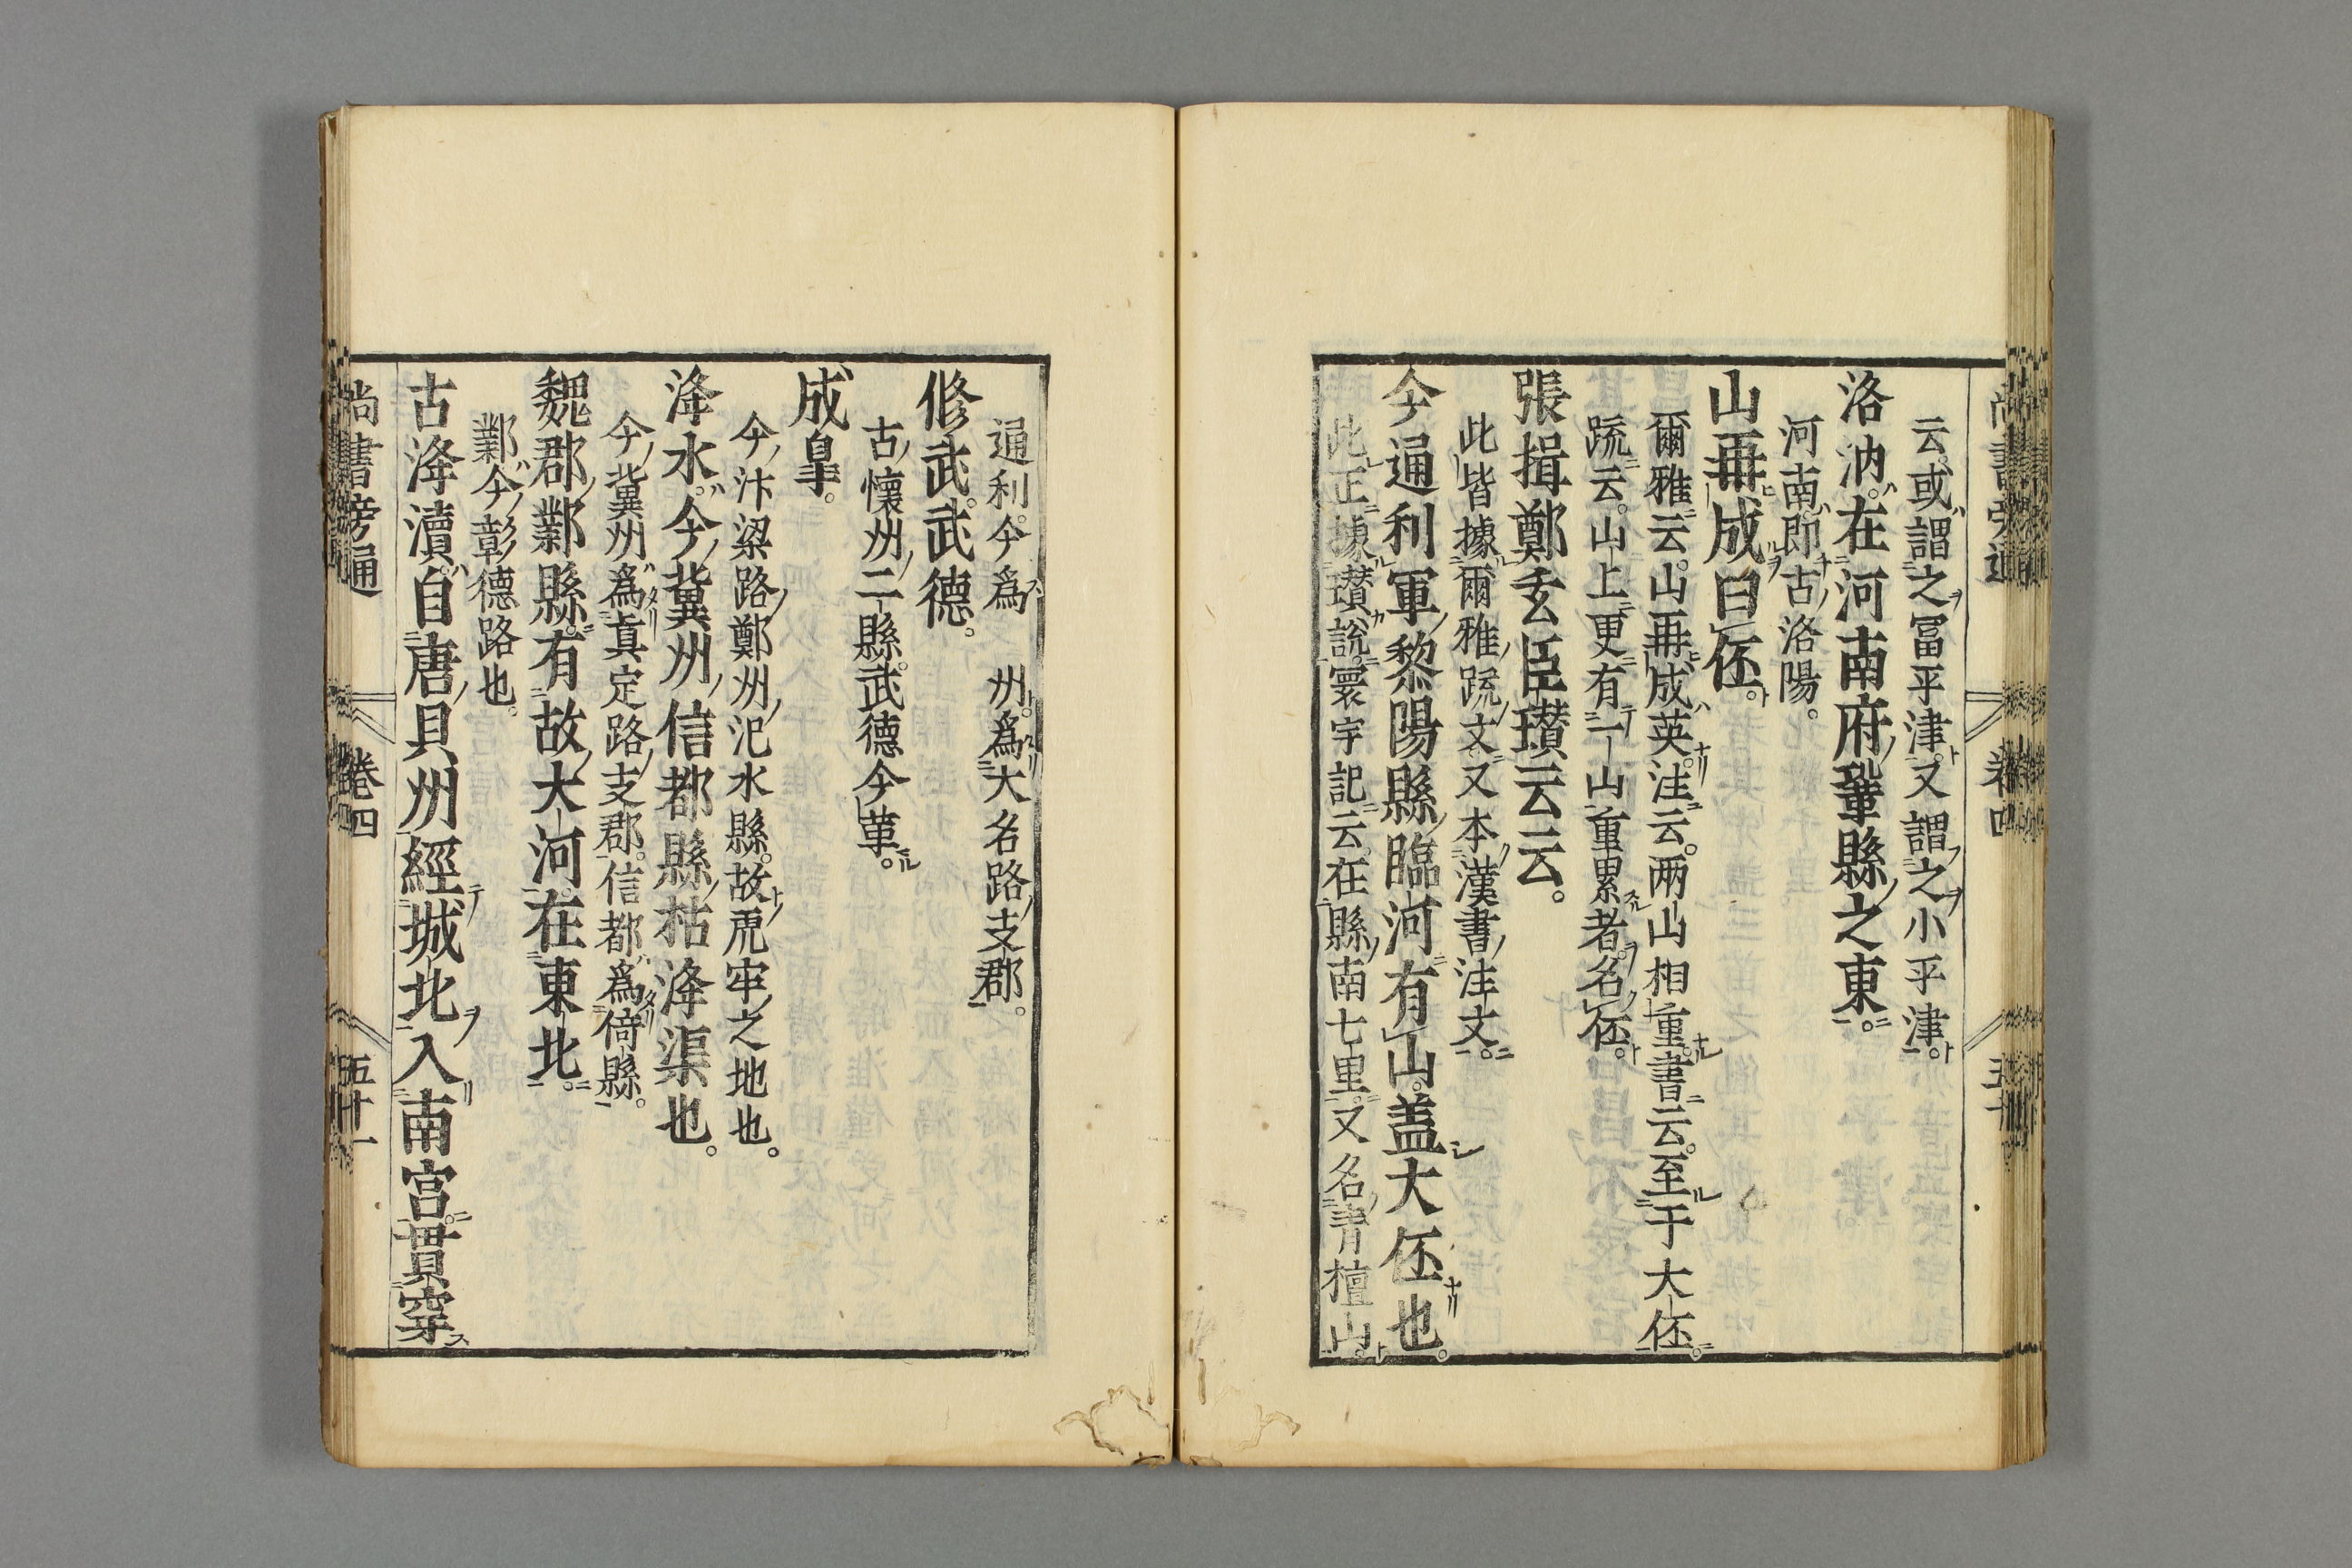 云或謂之冨平津又謂之小平津
洛汭在河南府鞏縣之東
河南即古洛陽
山再成曰伾
爾雅云山再成英注云两山相重書云至于大伾
䟽云山上更有一山重累者名伾
張揖鄭玄臣瓉云云
此皆據爾雅䟽文又本漢書注文
今通利軍黎陽縣臨河有山盖大伾也
此正據瓉說寰宇記云在縣南七里又名青檀山
通利今為 州為大名路支郡
修武武德
古懷州二縣武德今革
成皐
今汴梁路鄭州汜水縣故虎牢之地也
洚水今冀州信都縣枯洚渠也
今冀州為真定路支郡信都為倚縣
魏郡鄴縣有故大河在東北
鄴今彰德路也
古洚瀆自唐貝州經城北入南宫貫穿
尚書旁通 卷四 五十一